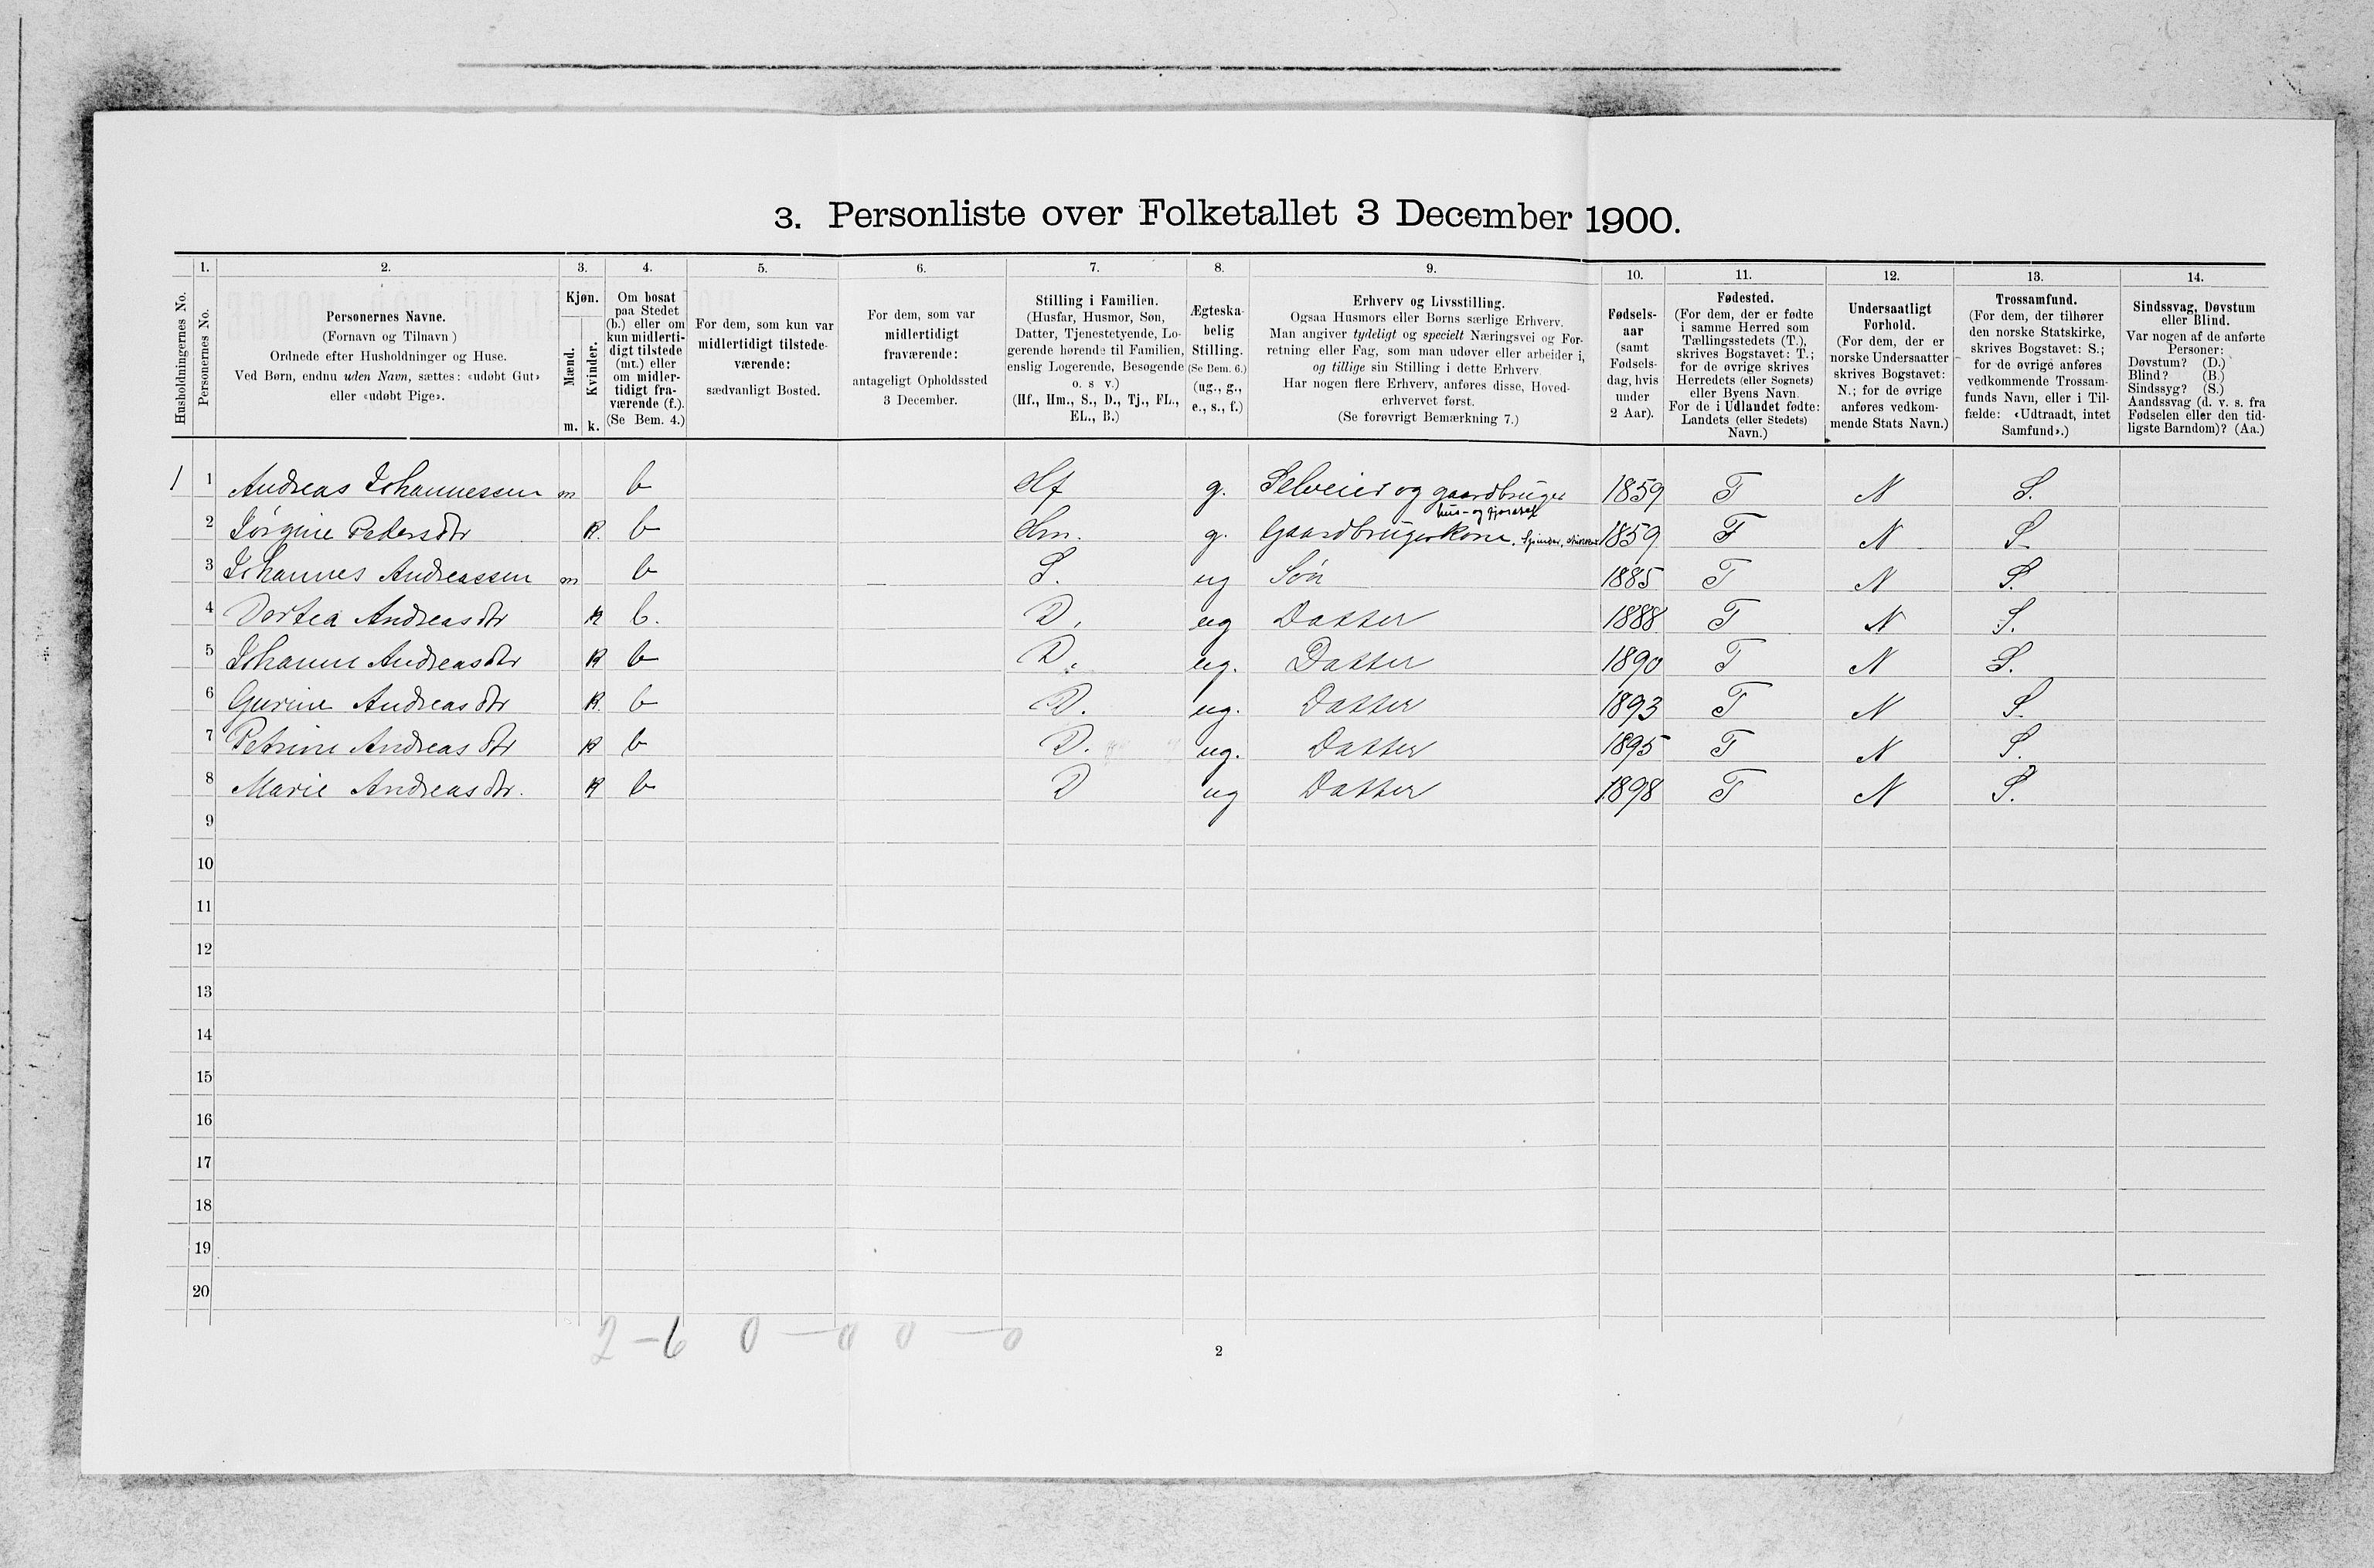 3. Personliste over Folketallet 3 December 1900.
1. 2. 3. 4. 5. 6. 7. 8. 9. 10. 11. 12. 13. 14.
Husholdningernes No.
Personernes No.
Personernes Navne.
(Fornavn og Tilnavn)
Ordnede efter Husholdninger og Huse.
Ved Børn, endnu uden Navn, sættes: «udøbt Gut»
eller «udøbt Pige».
Kjøn.
Mænd.
Kvinder.
m. k.
Om bosat
paa Stedet
(b.) eller om
kun midlerti-
digt tilstede
(mt.) eller
om midler-
tidigt fra-
værende (f.).
(Se Bem. 4.)
For dem, som kun var
midlertidigt tilstede-
værende:
sædvanligt Bosted.
For dem, som var
midlertidigt
fraværende:
antageligt Opholdssted
3 December.
Stilling i Familien.
(Husfar, Husmor, Søn,
Datter, Tjenestetyende, Lo-
gerende hørende til Familien,
enslig Logerende, Besøgende
o. s v.)
(Hf., Hm., S., D., Tj., FL.,
EL., B.)
Ægteska-
belig
Stilling.
(Se Bem. 6.)
(ug., g.,
e., s., f.)
Erhverv og Livsstilling.
Ogsaa Husmors eller Børns særlige Erhverv.
Man angiver tydeligt og specielt Næringsvei og For-
retning eller Fag, som man udøver eller arbeider i,
og tillige sin Stilling i dette Erhverv.
Har nogen flere Erhverv, anføres disse, Hoved-
erhvervet først.
(Se forøvrigt Bemærkning 7.)
Fødsels-
aar
(samt
Fødsels-
dag, hvis
under
2 Aar).
Fødested.
(For dem, der er fødte
i samme Herred som
Tællingsstedets (T.),
skrives Bogstavet: T.;
for de øvrige skrives
Herredets (eller Sognets)
eller Byens Navn.
For de i Udlandet fødte:
Landets (eller Stedets)
Navn.)
Undersaatligt
Forhold.
(For dem, der er
norske Undersaatter
skrives Bogstavet:
N.; for de øvrige
anføres vedkom-
mende Stats Navn.)
Trossamfund.
(For dem, der tilhører
den norske Statskirke,
skrives Bogstavet: S.;
for de øvrige anføres
vedkommende Trossam-
funds Navn, eller i Til-
fælde: «Udtraadt, intet
Samfund».)
Sindssvag, Døvstum
eller Blind.
Var nogen af de anførte
Personer:
Døvstum? (D.)
Blind? (B.)
Sindssyg? (S.)
Aandssvag (d. v. s. fra
Fødselen eller den tid-
ligste Barndom)? (Aa.)
1 1 Andreas Johannessen m b Hf g. Selveier og gaardbruger 1859 T N S.
hus- og fjøsstel
2 Jørgine Pedersdtr k. b Hm. g. Gaardbrugerkone, spinder, 1859 T N S.
3 Johannes Andreassen m b S. ug Søn 1885 T N S.
4 Dortea Andreasdtr k b. D. ug Datter 1888 T N S.
5 Johanne Andreasdtr k b D. ug. Datter 1890 T N S.
6 Gurine Andreasdtr k. b D. ug. Datter 1893 T N S.
7 Petrine Andreasdtr k b D. ug. Datter 1895 T N S.
8 Marie Andreasdtr. k b D ug Datter 1898 T N S.
9
10
11
12
13
14
15
16
17
18
19
20
2 - 6 0 - 0 0 - 0
2